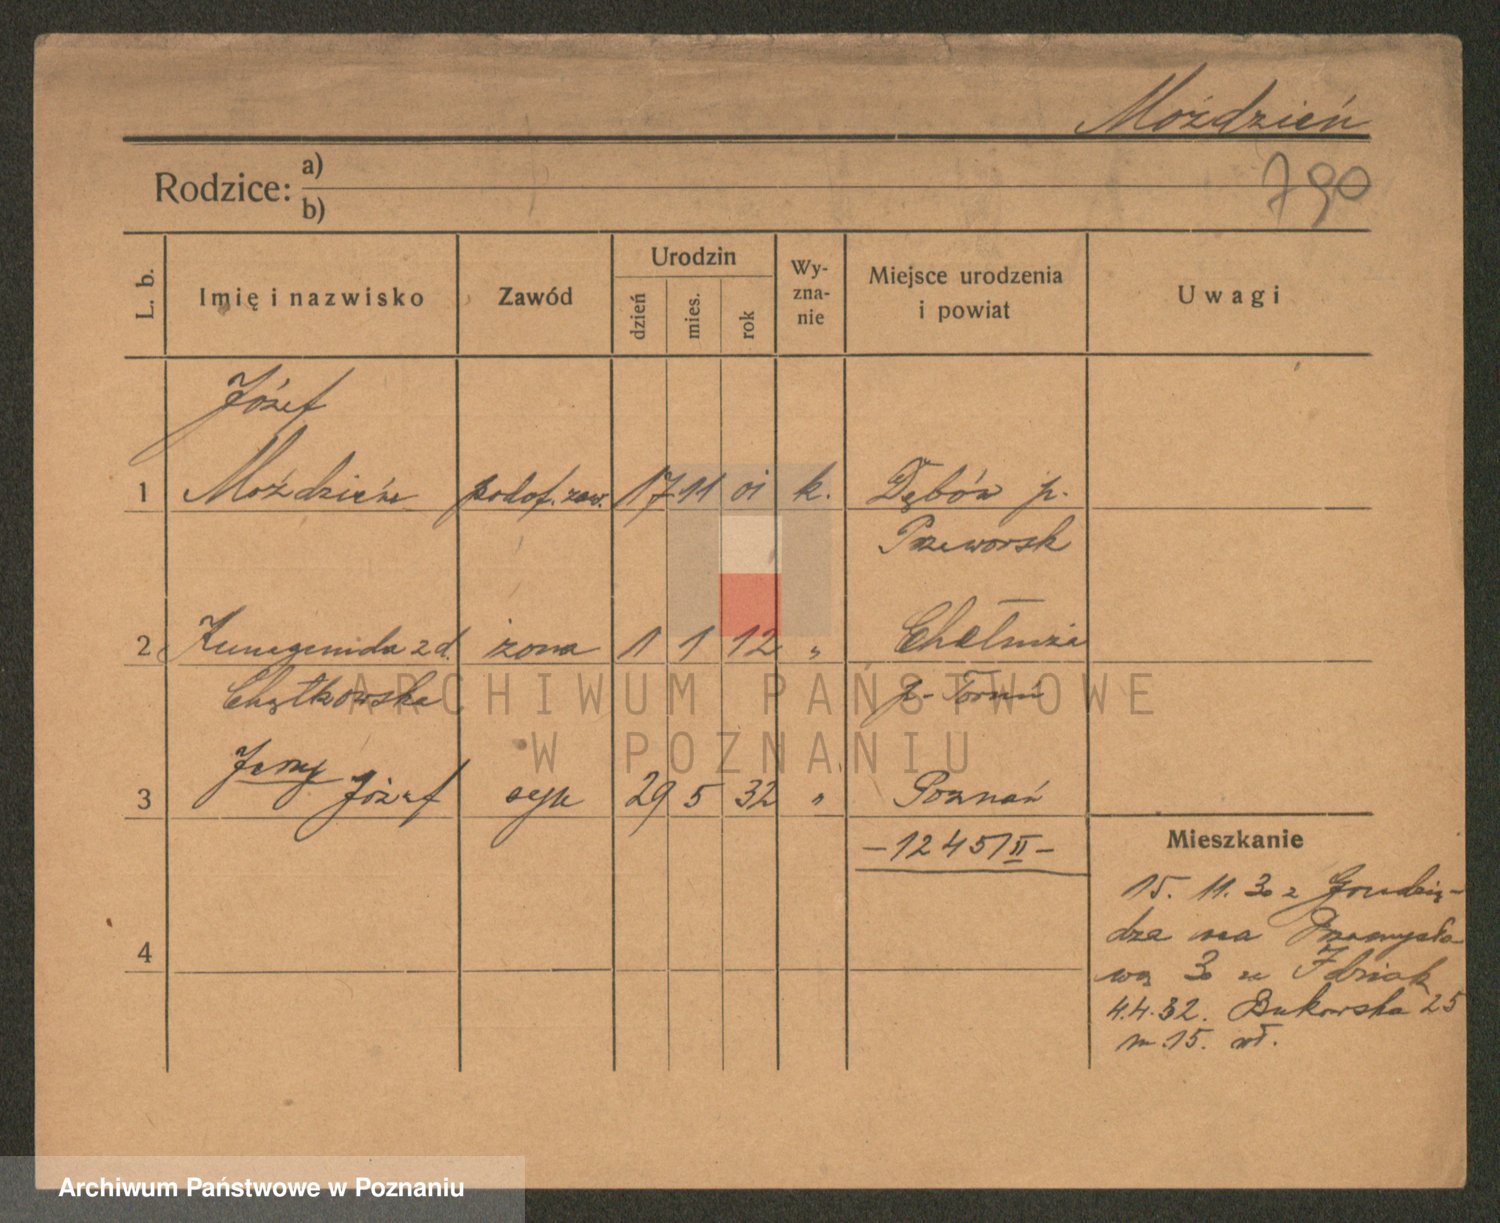 Moździeń
790
Rodzice: a)
b)
L. b.
Imię i nazwisko
Zawód
Urodzin
dzień
mies.
rok
Wy-
zna-
nie
Miejsce urodzenia
i powiat
Uwagi
Józef
1 Moździeń podof. zaw. 17 11 01 k. Dębów p.
Przeworsk
2 Kunegunda z d. żona 1 1 12 „ Chełmża
Chętkowska p. Toruń
3 Jerzy Józef syn 29 5 32 „ Poznań
– 1245/II –
4
Mieszkanie
15. 11. 30 z Grudzią-
dza na Przemysło
wą 30 u Idziak
4.4.32. Bukowska 25
m. 15. wł.
ARCHIWUM PAŃSTWOWE
W POZNANIU
Archiwum Państwowe w Poznaniu